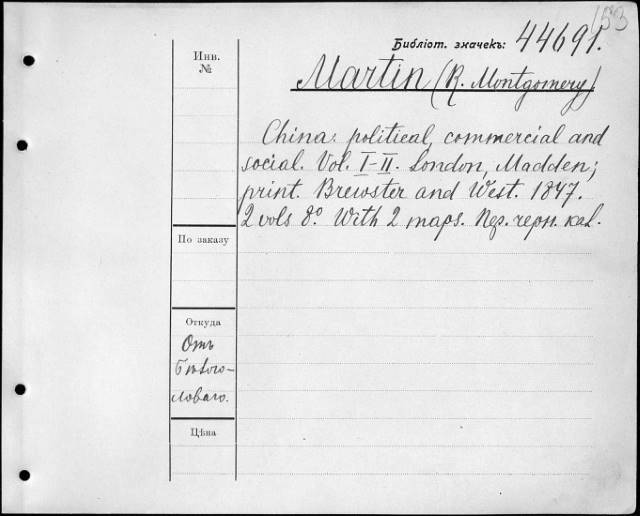 153
Библіот. значекъ: 44691.
Инв.
№
Martin (R. Montgomery)
China: political, commercial and
social. Vol. I-II. London, Madden;
print. Brewster and West. 1847.
2 vols 8º With 2 maps. Пер. черн. кал.
По заказу
Откуда
Отъ
Бѣлого-
ловаго.
Цѣна